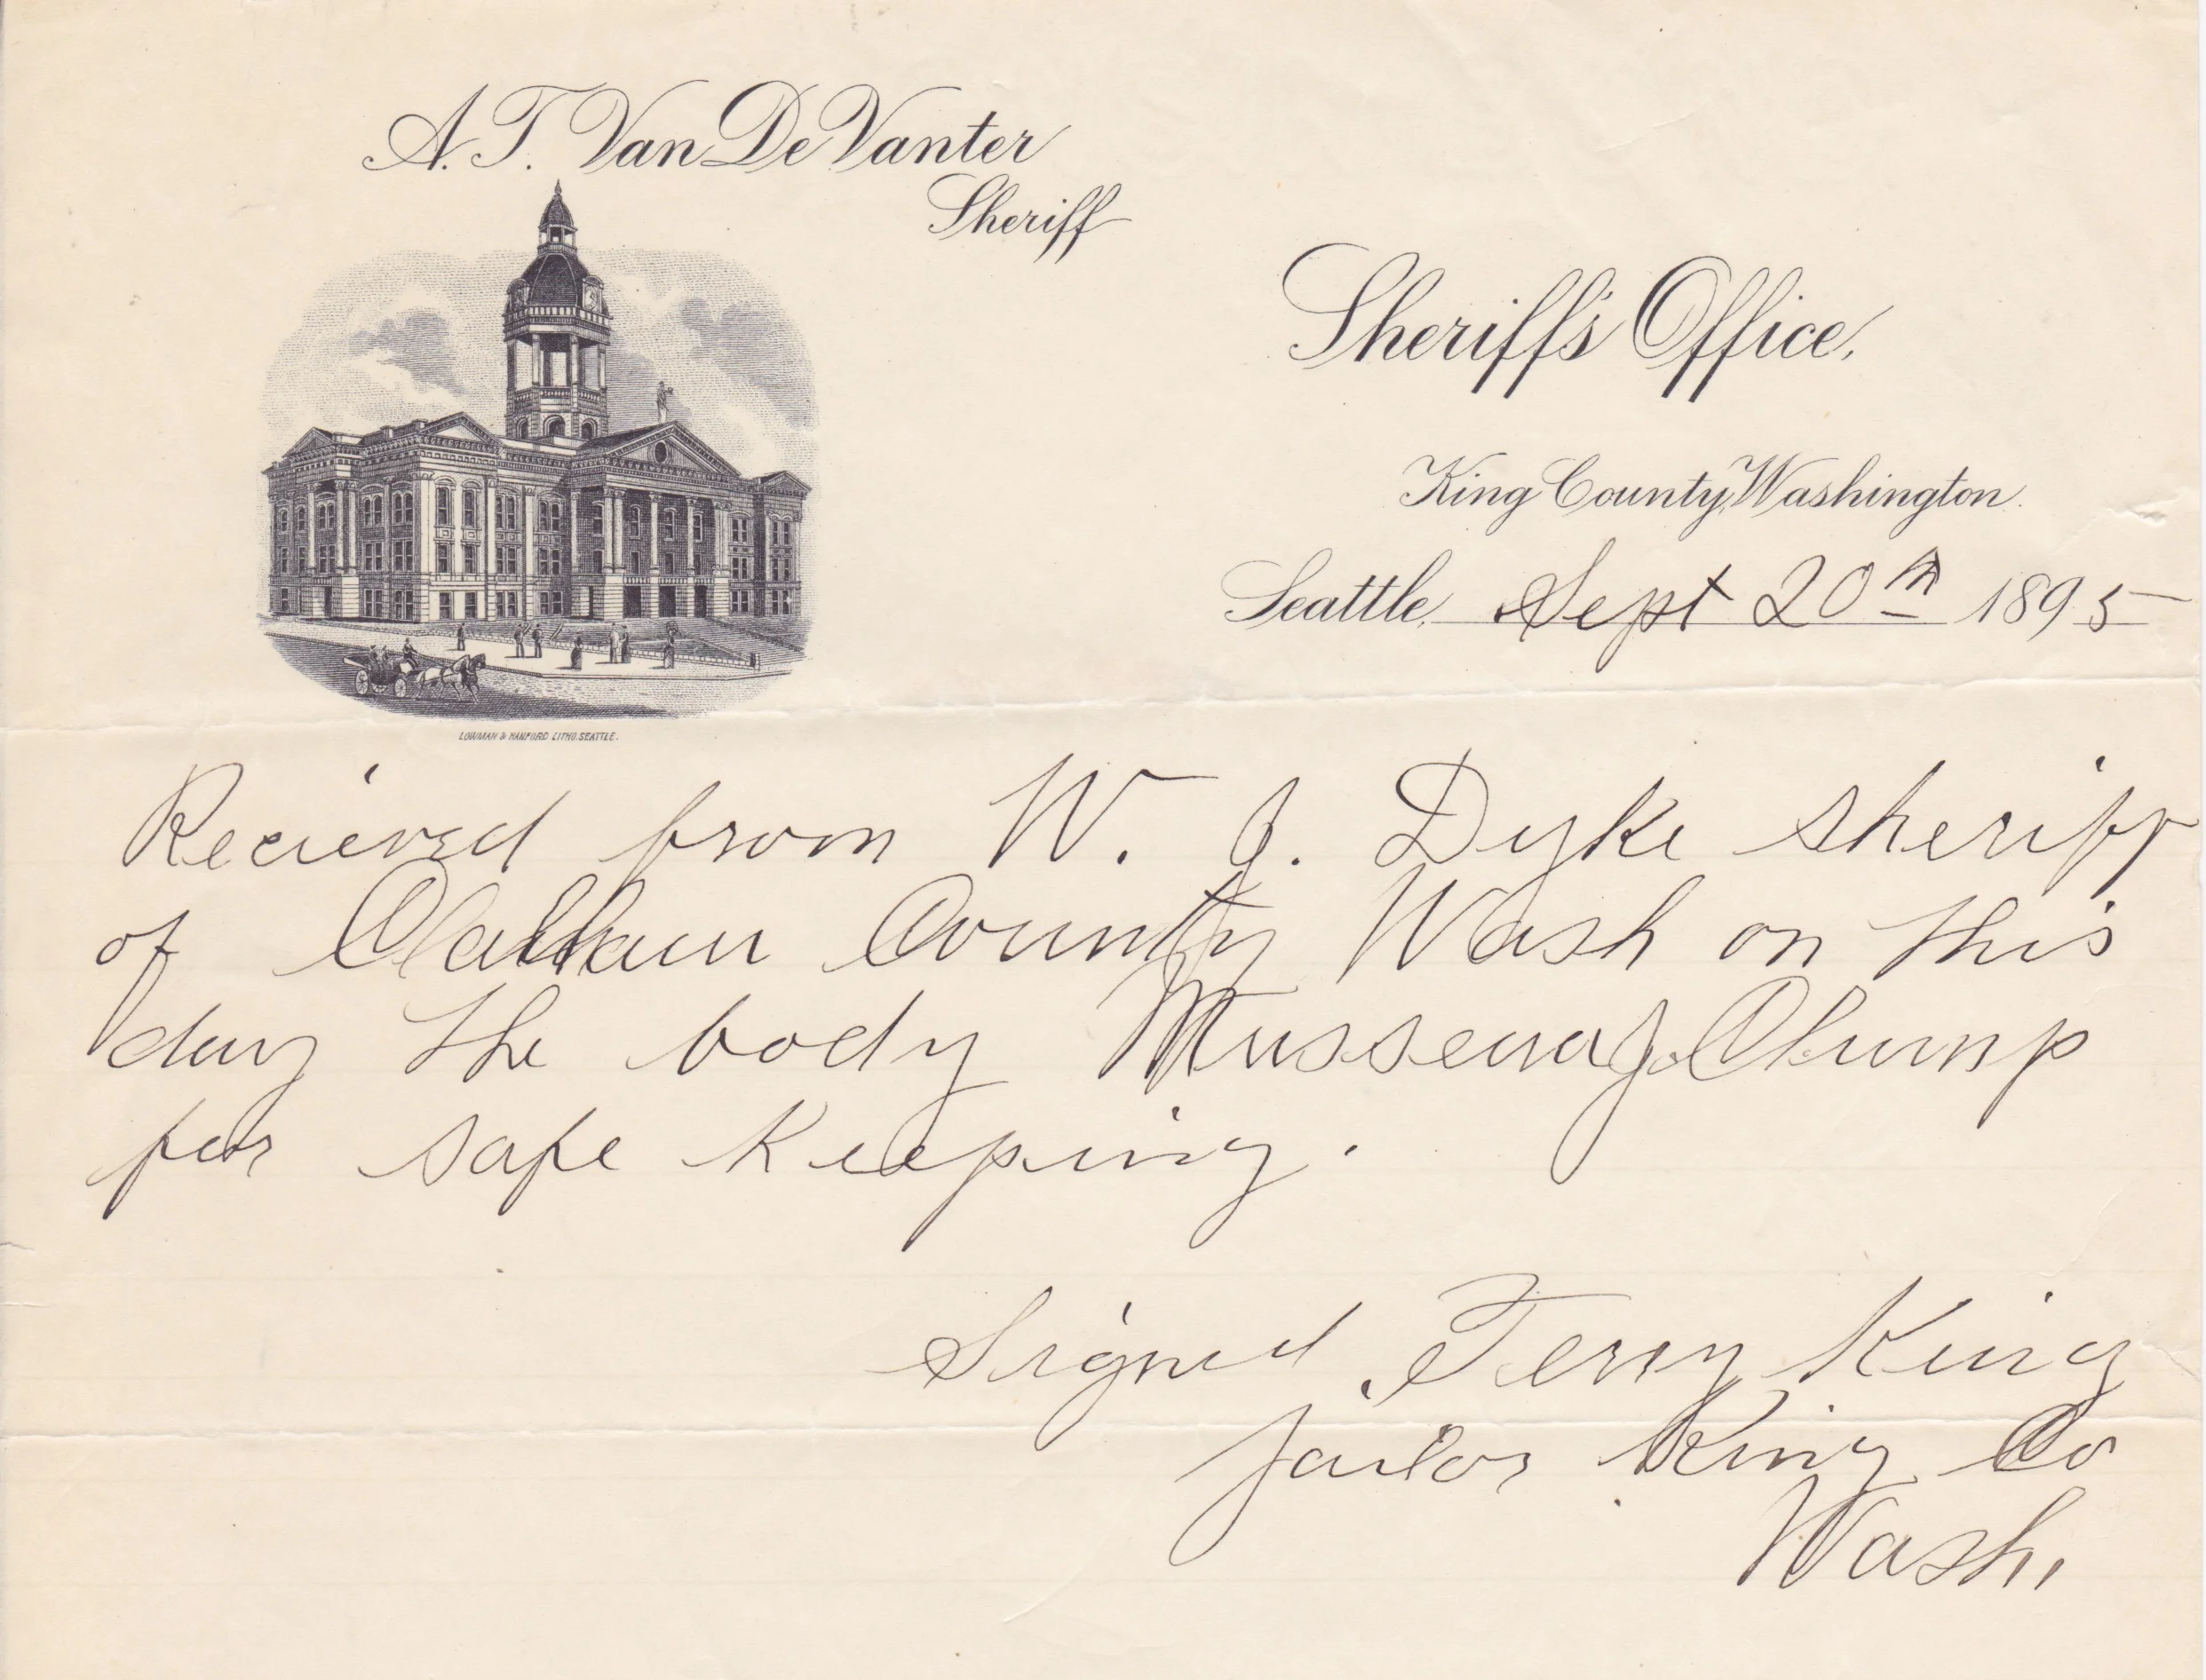 A. T. Van De Vanter
Sheriff
Sheriff's Office,
King County, Washington.
Seattle, Sept 20th 1895
LOWMAN & HANFORD LITHO. SEATTLE.
Recieved from W. J. Dyke sheriff
of Clallam County Wash on this
day the body
for safe Keeping.
Signed Terry King
jailor King Co
Wash.